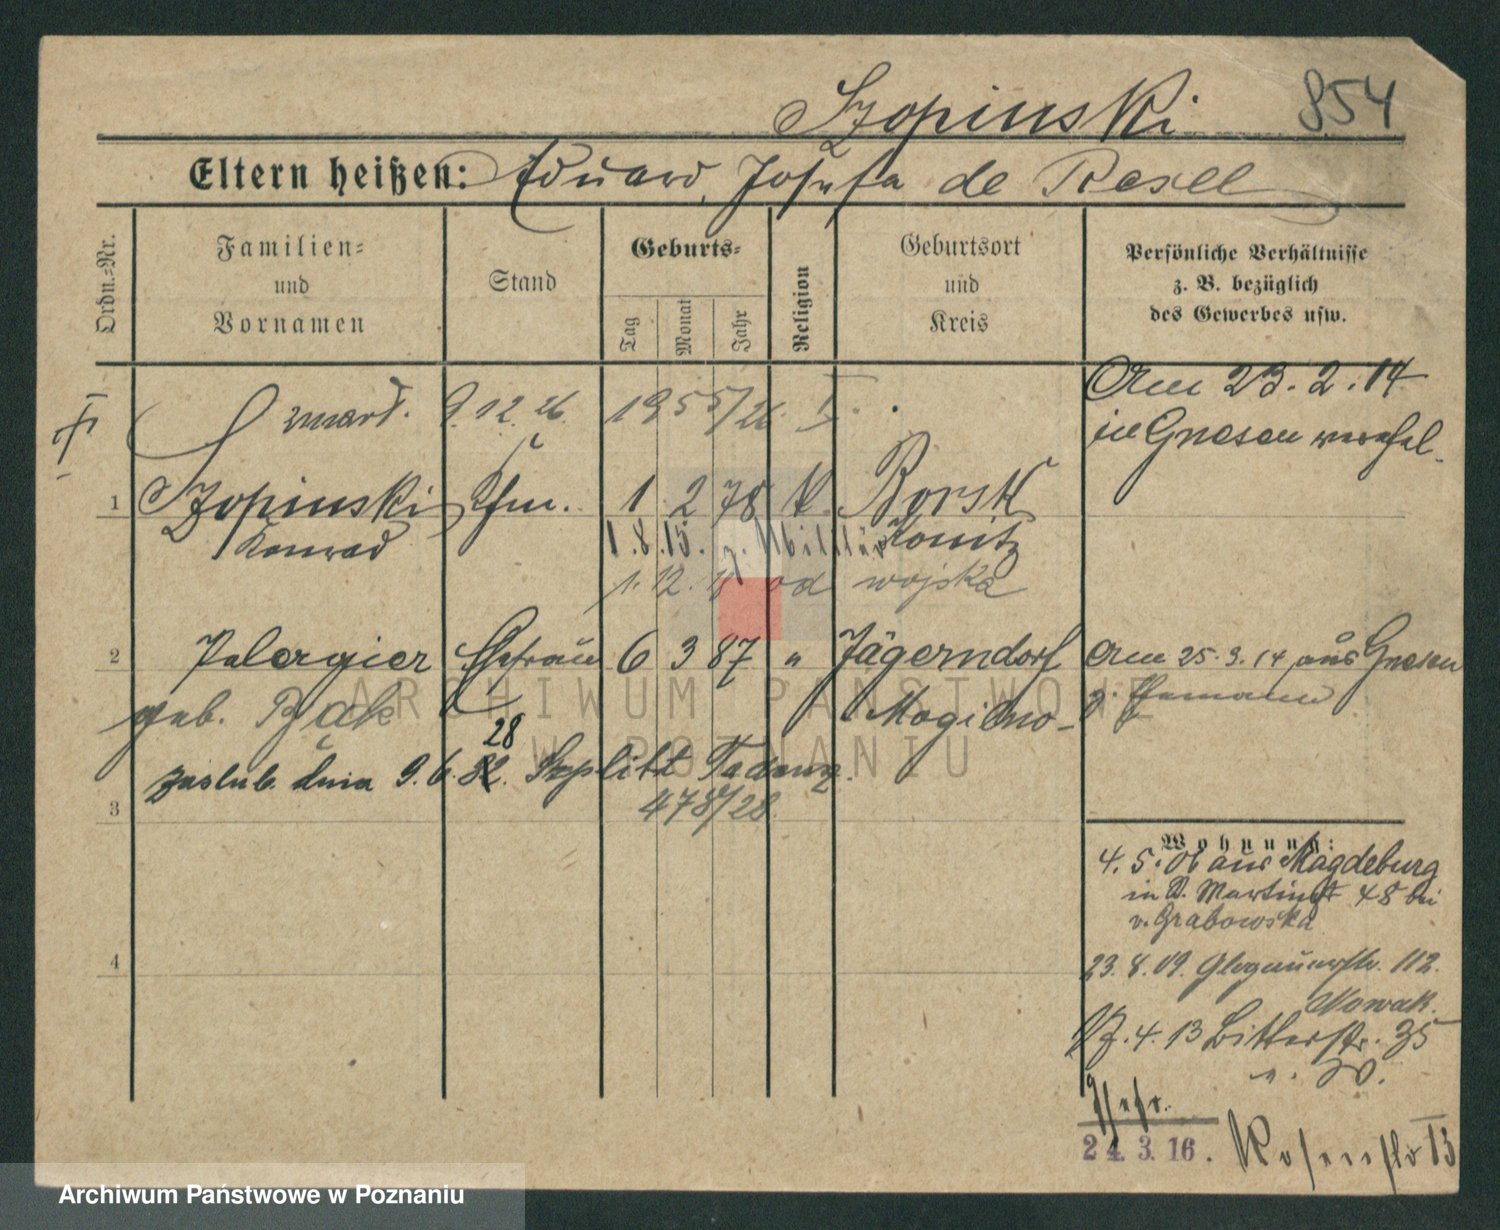 Szopinski 854
Eltern heißen: Eduard, Josefa de Resel
Ordn.-Nr.
Familien-
und
Vornamen
Stand
Geburts-
Tag
Monat
Jahr
Religion
Geburtsort
und
Kreis
Persönliche Verhältnisse
z. B. bezüglich
des Gewerbes usw.
Am 23.2.14
in Gnesen verehel.
zmarł. 9.12.26. 1955/26 I.
1 Szopinski Kfm. 1 2 78 k. Borsk
Konrad Konitz
1.8.15. z. Militär
1.12.18 od wojska
2 Pelagier Ehefrau 6 3 87 " Jägerndorf
geb. Bąk Mogilno
Am 25.3.14 aus Gnesen
z. Ehemann
28
zaślub. dnia 9.6.32.
478/28.
3
4
Wohnung:
4.5.06 aus Magdeburg
in St. Martinstr 48 bei
v. Grabowska
23.8.09. Glogauerstr. 112.
Nowak.
17.4.13 Bitterstr. 35
n. W.
24.3.16.
Rosenstr 13
ARCHIWUM PAŃSTWOWE
W POZNANIU
Archiwum Państwowe w Poznaniu